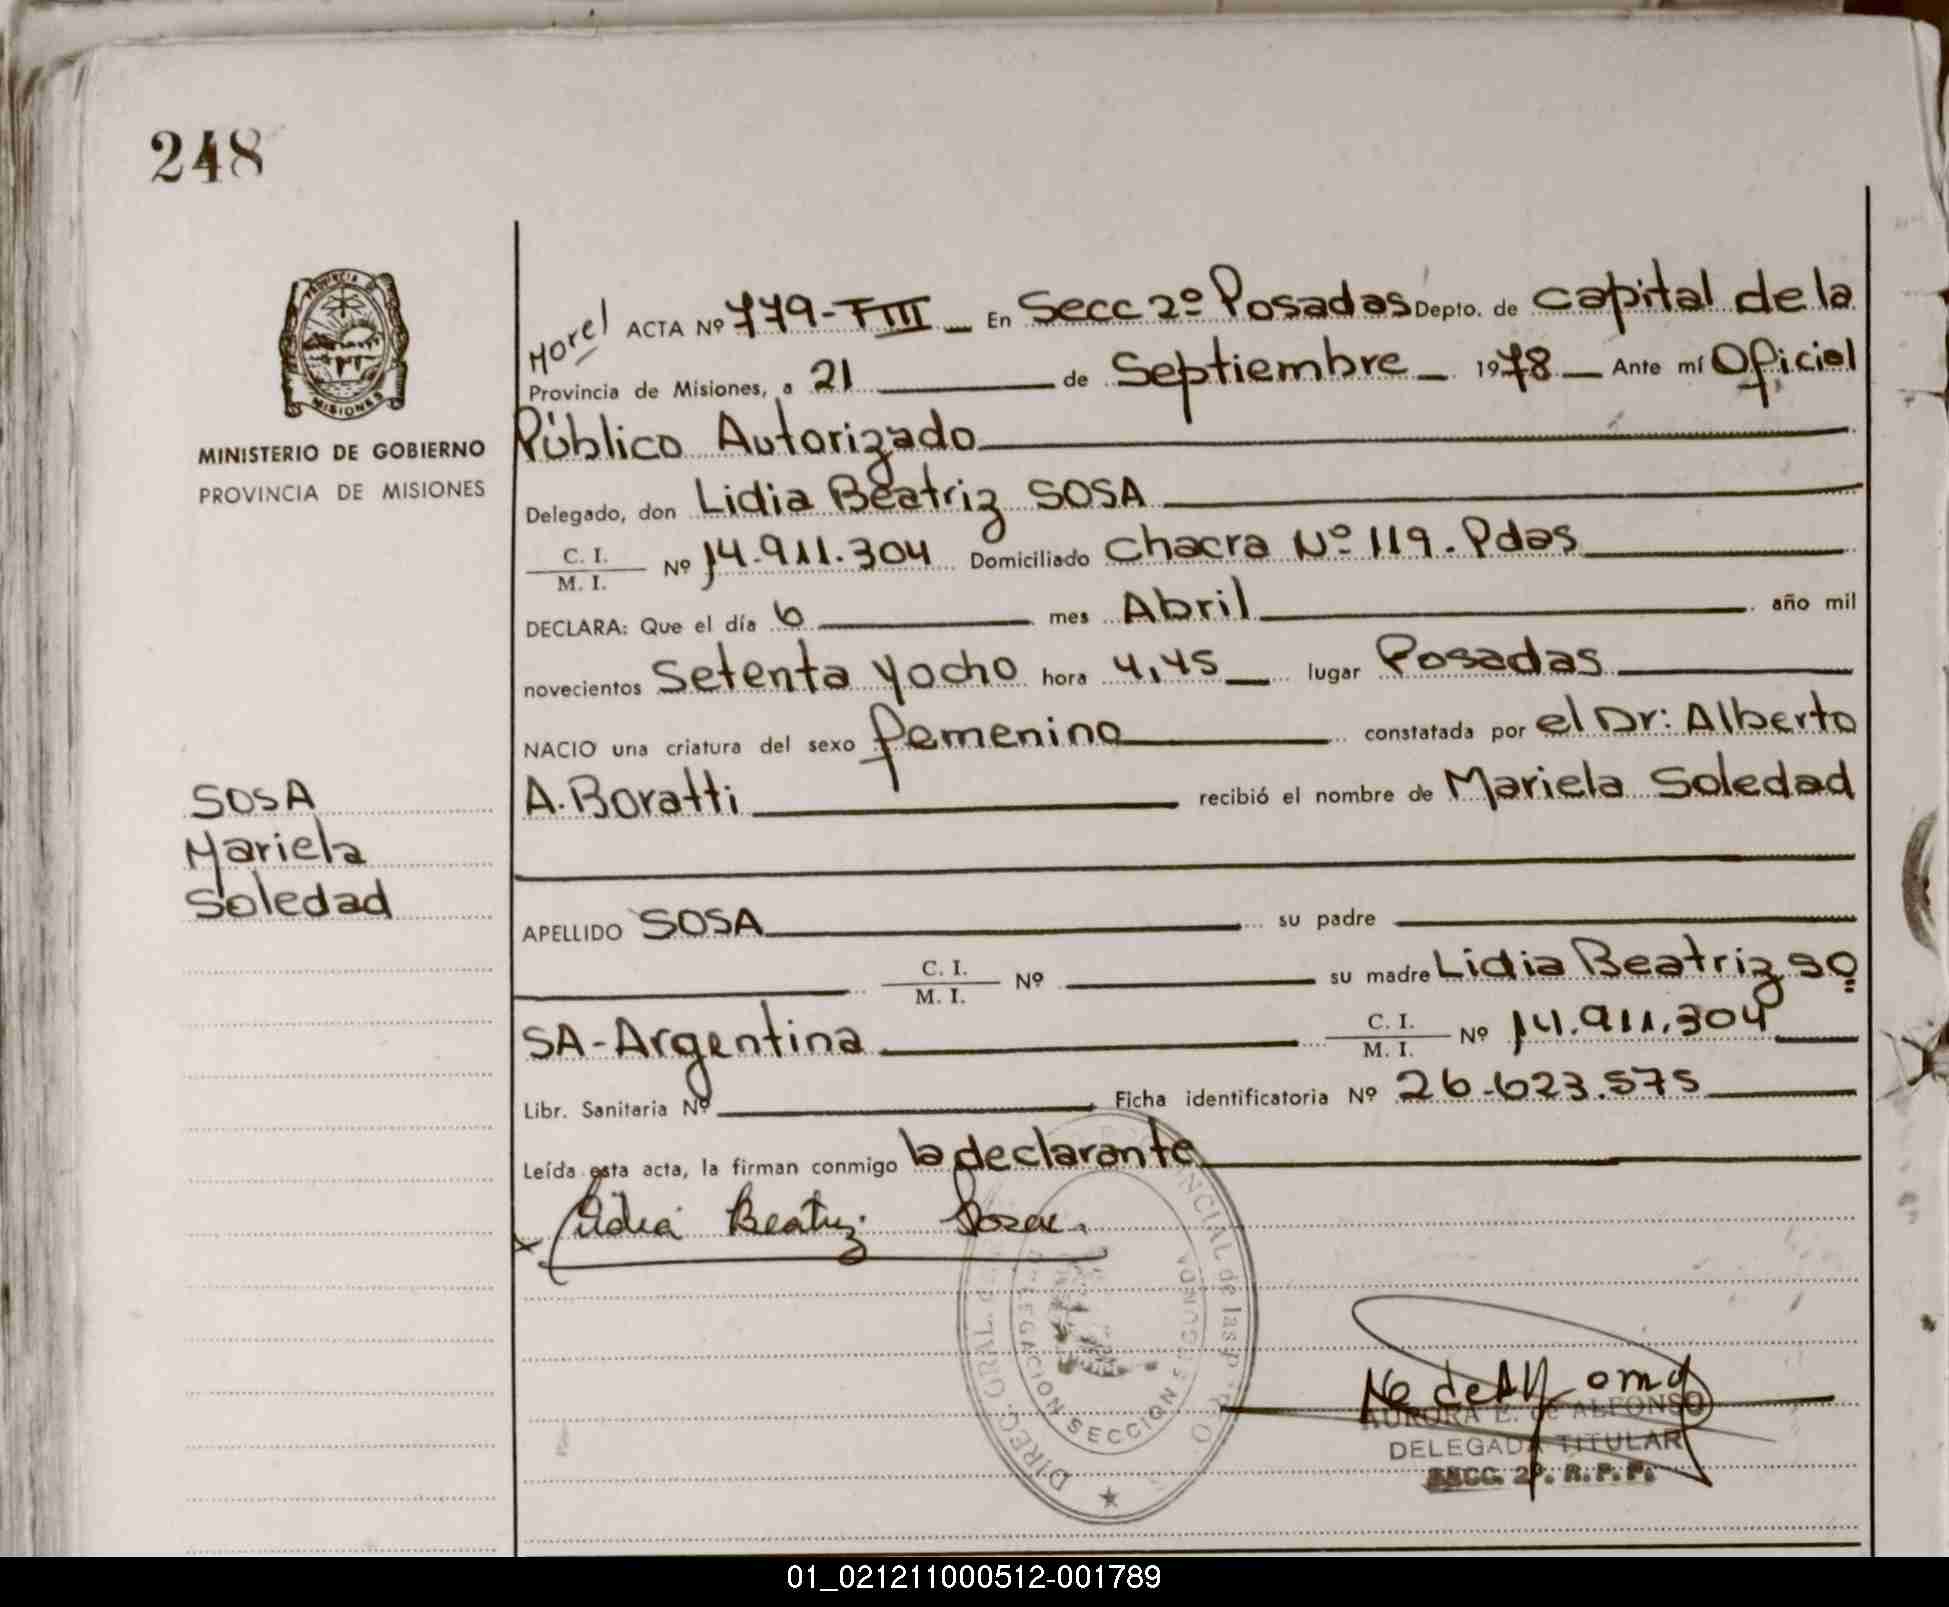 248
PROVINCIA DE
MISIONES
MINISTERIO DE GOBIERNO
PROVINCIA DE MISIONES
SOSA
Mariela
Soledad
ACTA Nº 779-TIII En Secc 2º Posadas Depto. de capital de la
Provincia de Misiones, a 21 de Septiembre 1978 Ante mí Oficial
Público Autorizado
Delegado, don Lidia Beatriz SOSA
C. I.
M. I. Nº 14.911.304 Domiciliado Chacra Nº 119. Pdas
DECLARA: Que el día 6 mes Abril año mil
novecientos Setenta yocho hora 4,45 lugar Posadas
NACIO una criatura del sexo femenino constatada por el Dr: Alberto
A. Boratti recibió el nombre de Mariela Soledad
APELLIDO SOSA su padre
C. I.
M. I. Nº su madre Lidia Beatriz SO
SA-Argentina C. I.
M. I. Nº 14.911.304
Libr. Sanitaria Nº Ficha identificatoria Nº 26.623.575
Leída esta acta, la firman conmigo la declarante
Lidia Beatriz Sosa
AURORA E. de ALFONSO
DELEGADA TITULAR
SECC. 2ª. R.P.P.
01_021211000512-001789